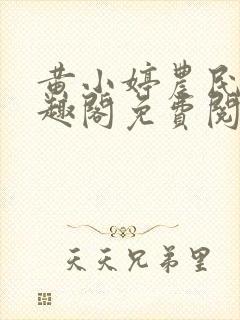 黄小婷農民
趣閣免費閱
天天兄弟里